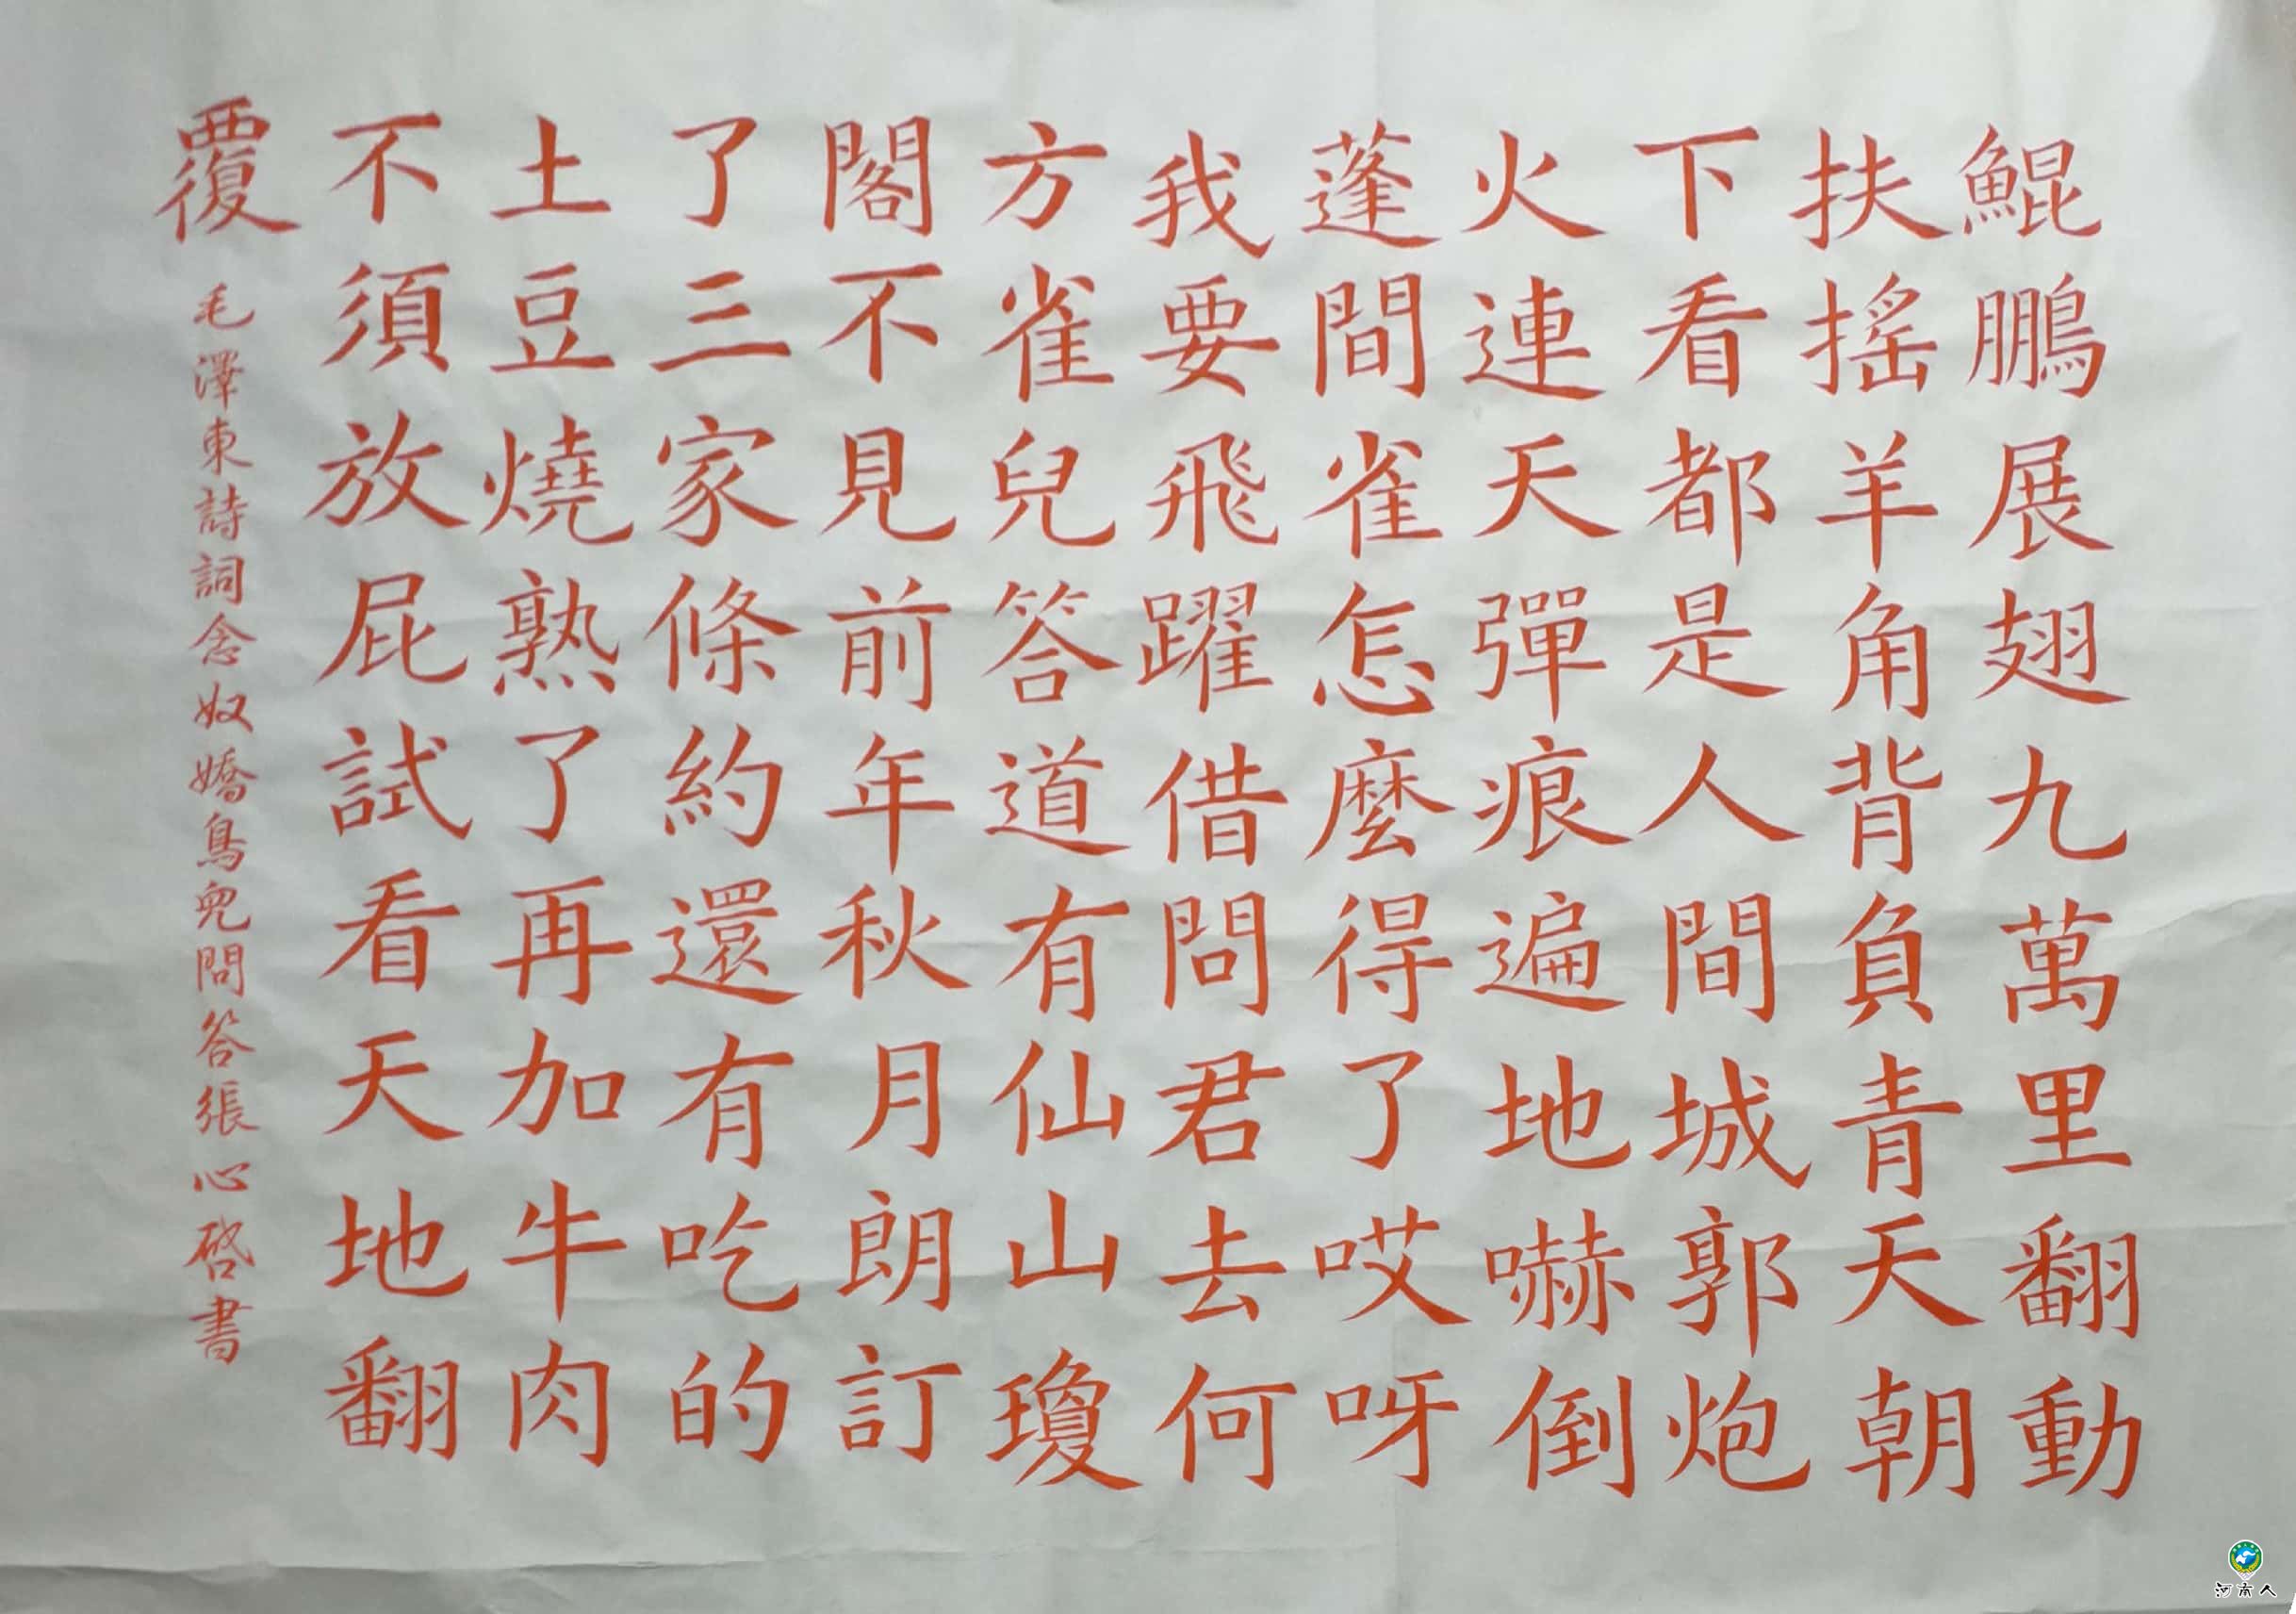 鯤鵬展翅九萬里翻動
扶搖羊角背負青天朝
下看都是人間城郭炮
火連天彈痕遍地嚇倒
蓬間雀怎麼得了哎呀
我要飛躍借問君去何
方雀兒答道有仙山瓊
閣不見前年秋月朗訂
了三家條約還有吃的
土豆燒熟了再加牛肉
不須放屁試看天地翻
覆
毛澤東詩詞念奴嬌鳥兒問答張心啓書
河南人